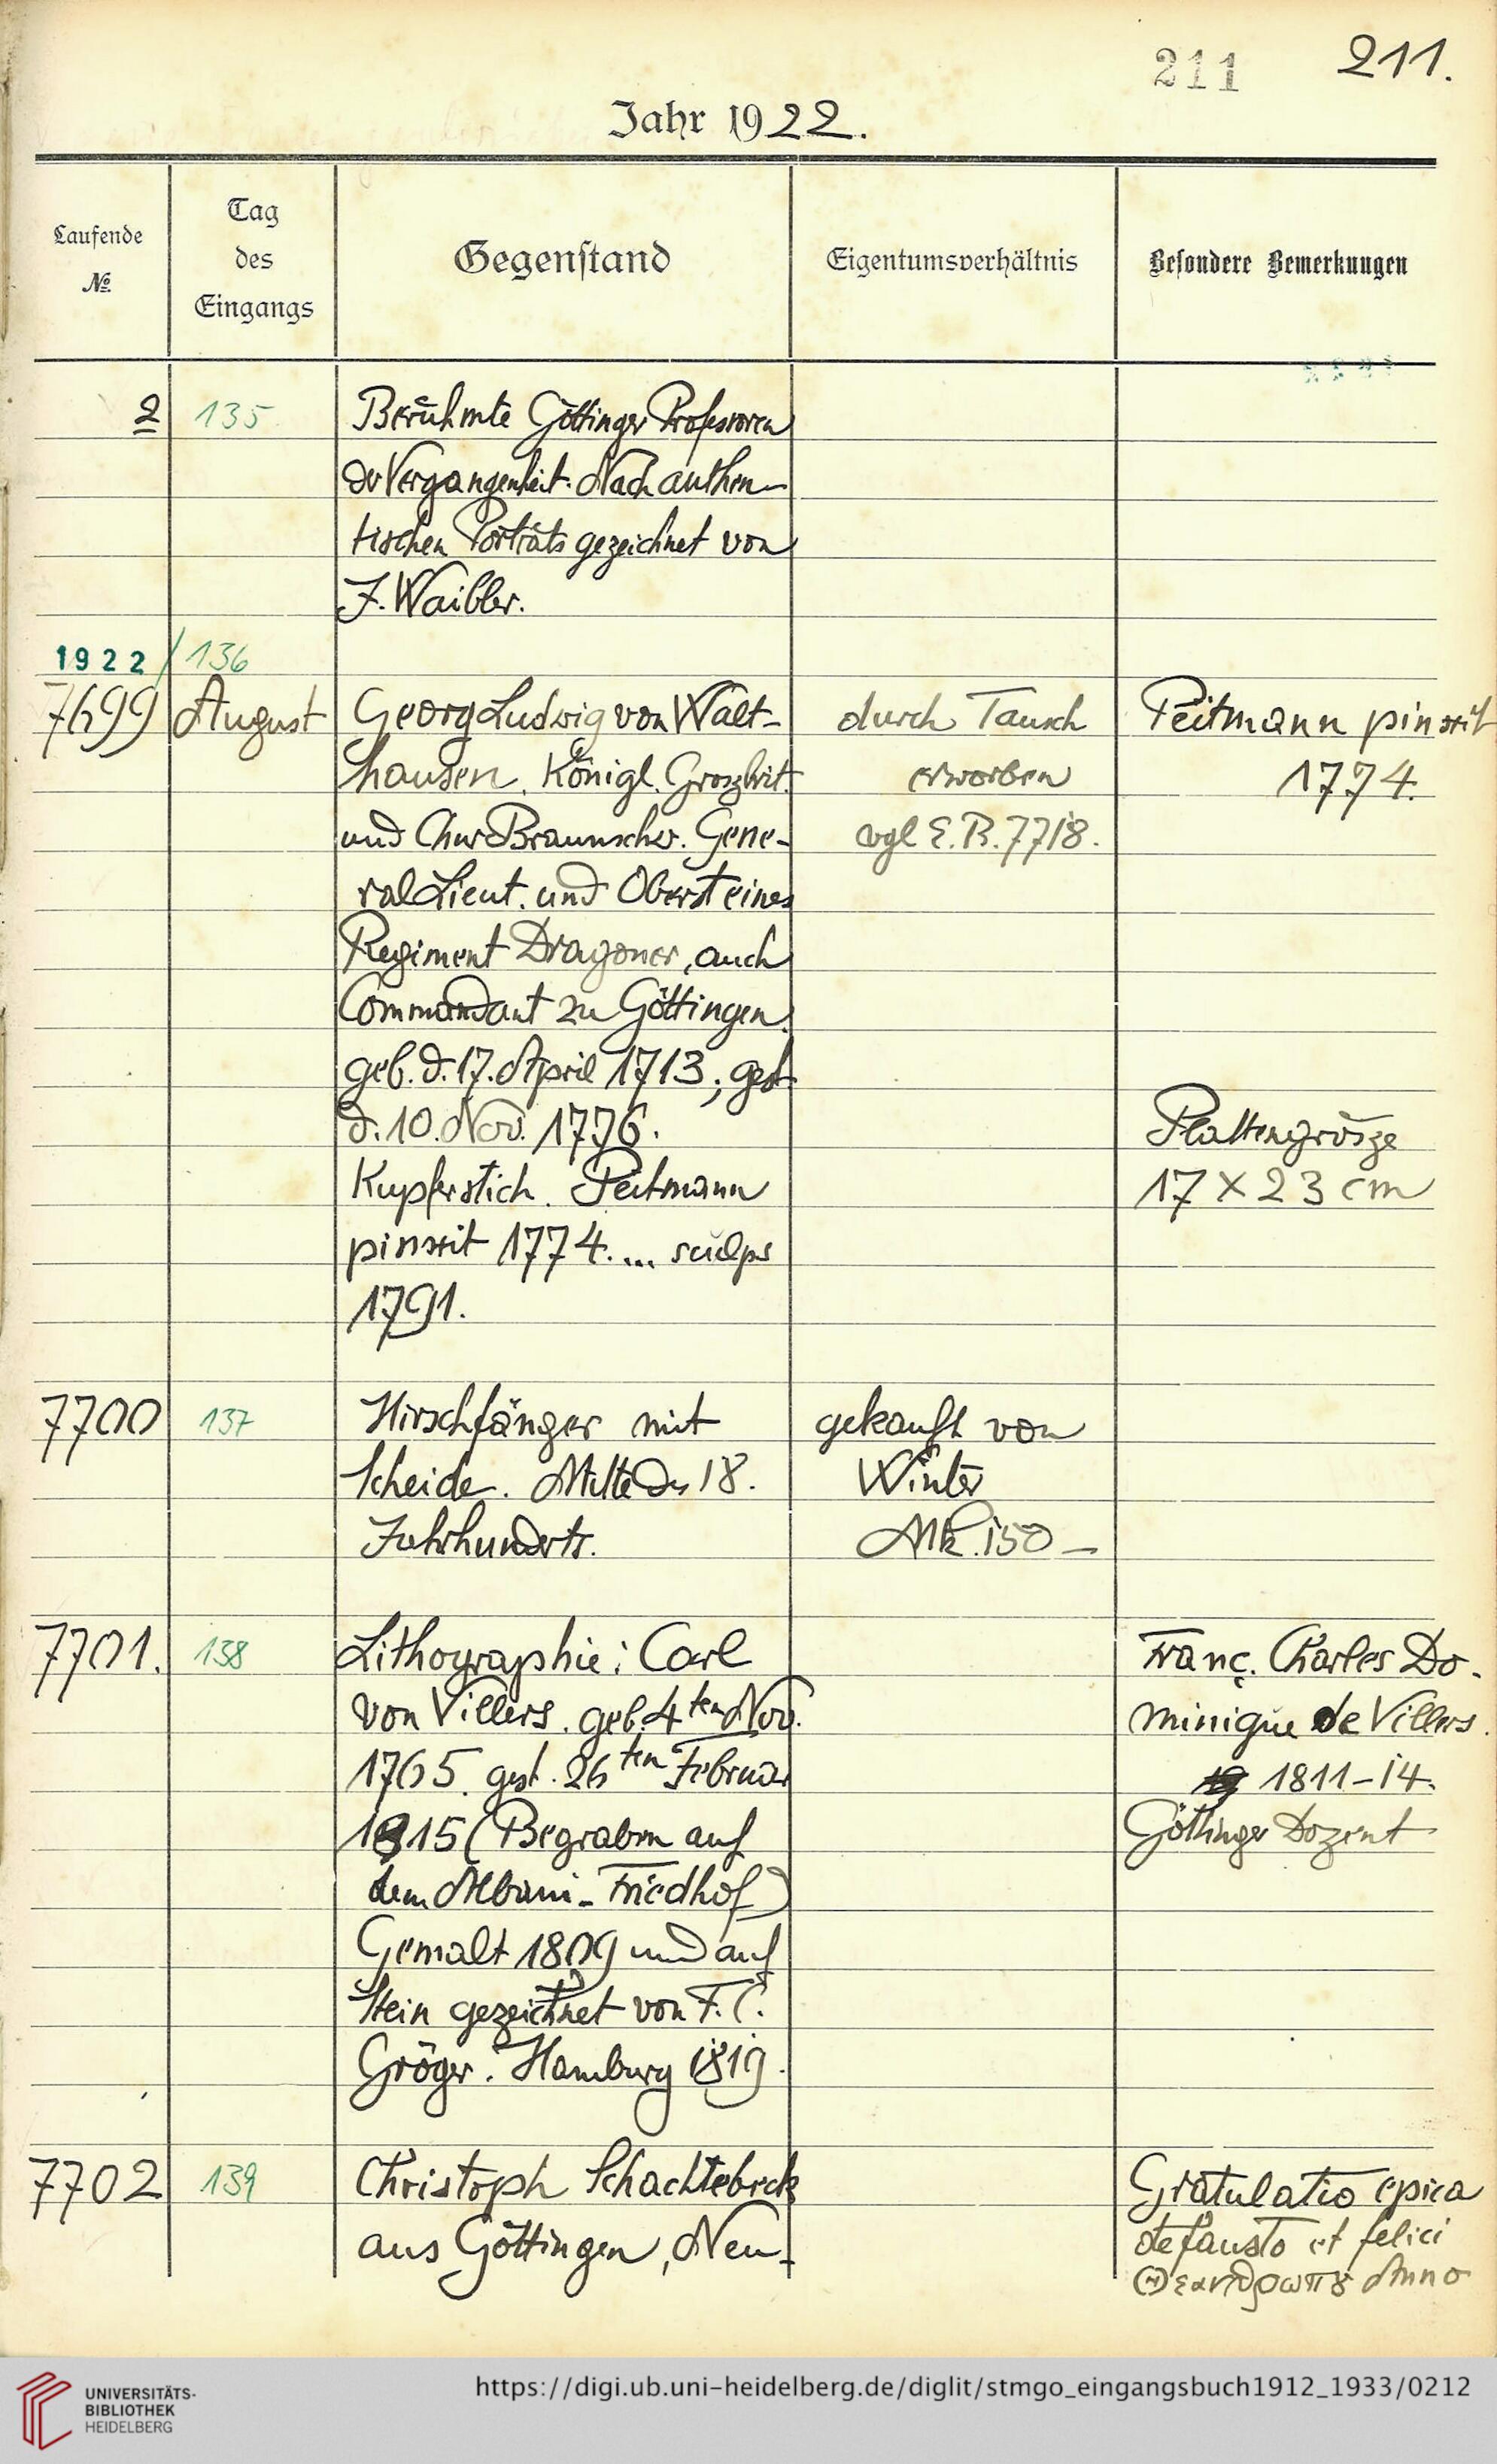 211 211.
Jahr 1922.
Laufende
№
Tag
des
Eingangs
Gegenstand
Eigentumsverhältnis
Besondere Bemerkungen
2 135 Berühmte Göttinger Professoren
der Vergangenheit. Nach authen-
tischen Porträts gezeichnet von
J. Waibler.
1922/136
7699 August Georg Ludwig von Walt- durch Tausch Peitmann pinxit
hausen. Königl. Groszbrit. erworben 1774.
und Chur Braunschw. Gene- vgl E.B. 7718.
ral Lieut. und Oberst eines
Regiment Dragoner, auch
Commandant zu Göttingen.
geb. d. 17. April 1713; gest.
d. 10. Nov. 1776. Plattengrösze
Kupferstich. Peitmann 17 x 23 cm
pinxit 1774. ... sculps
1791.
7700 137 Hirschfänger mit gekauft von
Scheide. Mitte des 18. Winter
Jahrhunderts. Mk. 150 –
7701. 138 Lithographie: Carl Franç. Charles Do-
von Villers. geb. 4ten Nov. minique de Villers.
1765. gest. 26ten Februar 1811–14.
1815 (Begraben auf Göttinger Dozent
dem Albani-Friedhof)
Gemalt 1809 und auf
Stein gezeichnet von F. C.
Gröger. Hamburg 1819.
7702 139 Christoph Schachtebeck Gratulatio epica
aus Göttingen, Neu- de fausto et felici
Θεανθρωπȣ Anno
UNIVERSITÄTS-
BIBLIOTHEK
HEIDELBERG
https://digi.ub.uni-heidelberg.de/diglit/stmgo_eingangsbuch1912_1933/0212